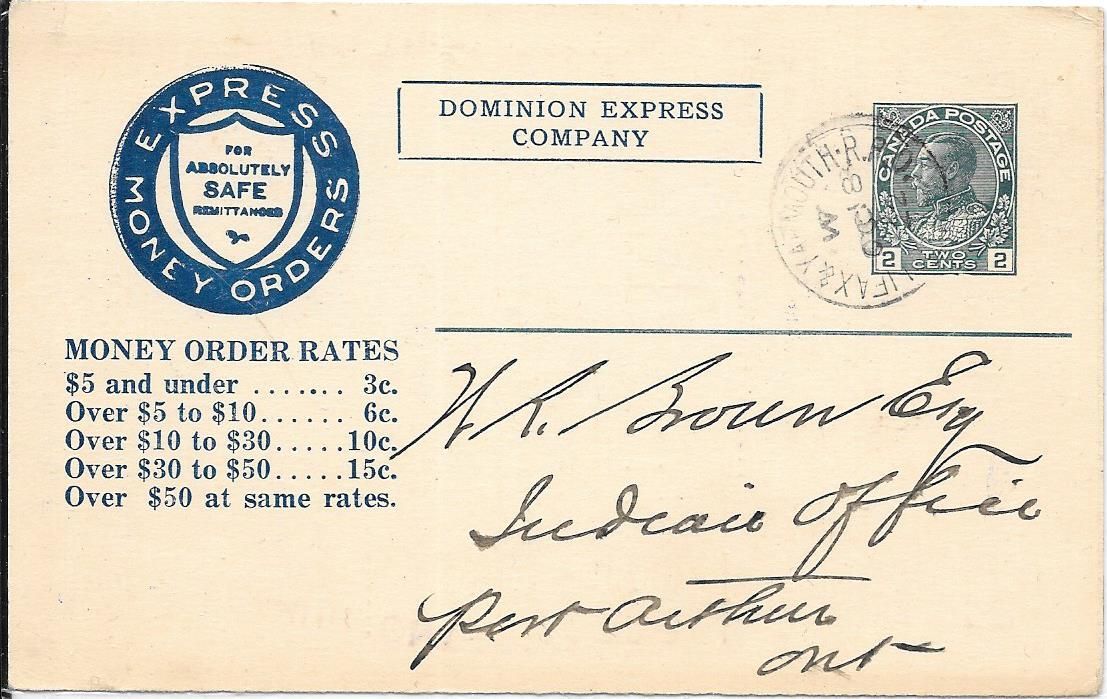 EXPRESS
MONEY ORDERS
FOR
ABSOLUTELY
SAFE
REMITTANCES
DOMINION EXPRESS
COMPANY
CANADA POSTAGE
2 TWO CENTS 2
MONEY ORDER RATES
$5 and under ....... 3c.
Over $5 to $10...... 6c.
Over $10 to $30.....10c.
Over $30 to $50.....15c.
Over $50 at same rates.
W. R. Brown Esq
Indian Office
Port Arthur
Ont